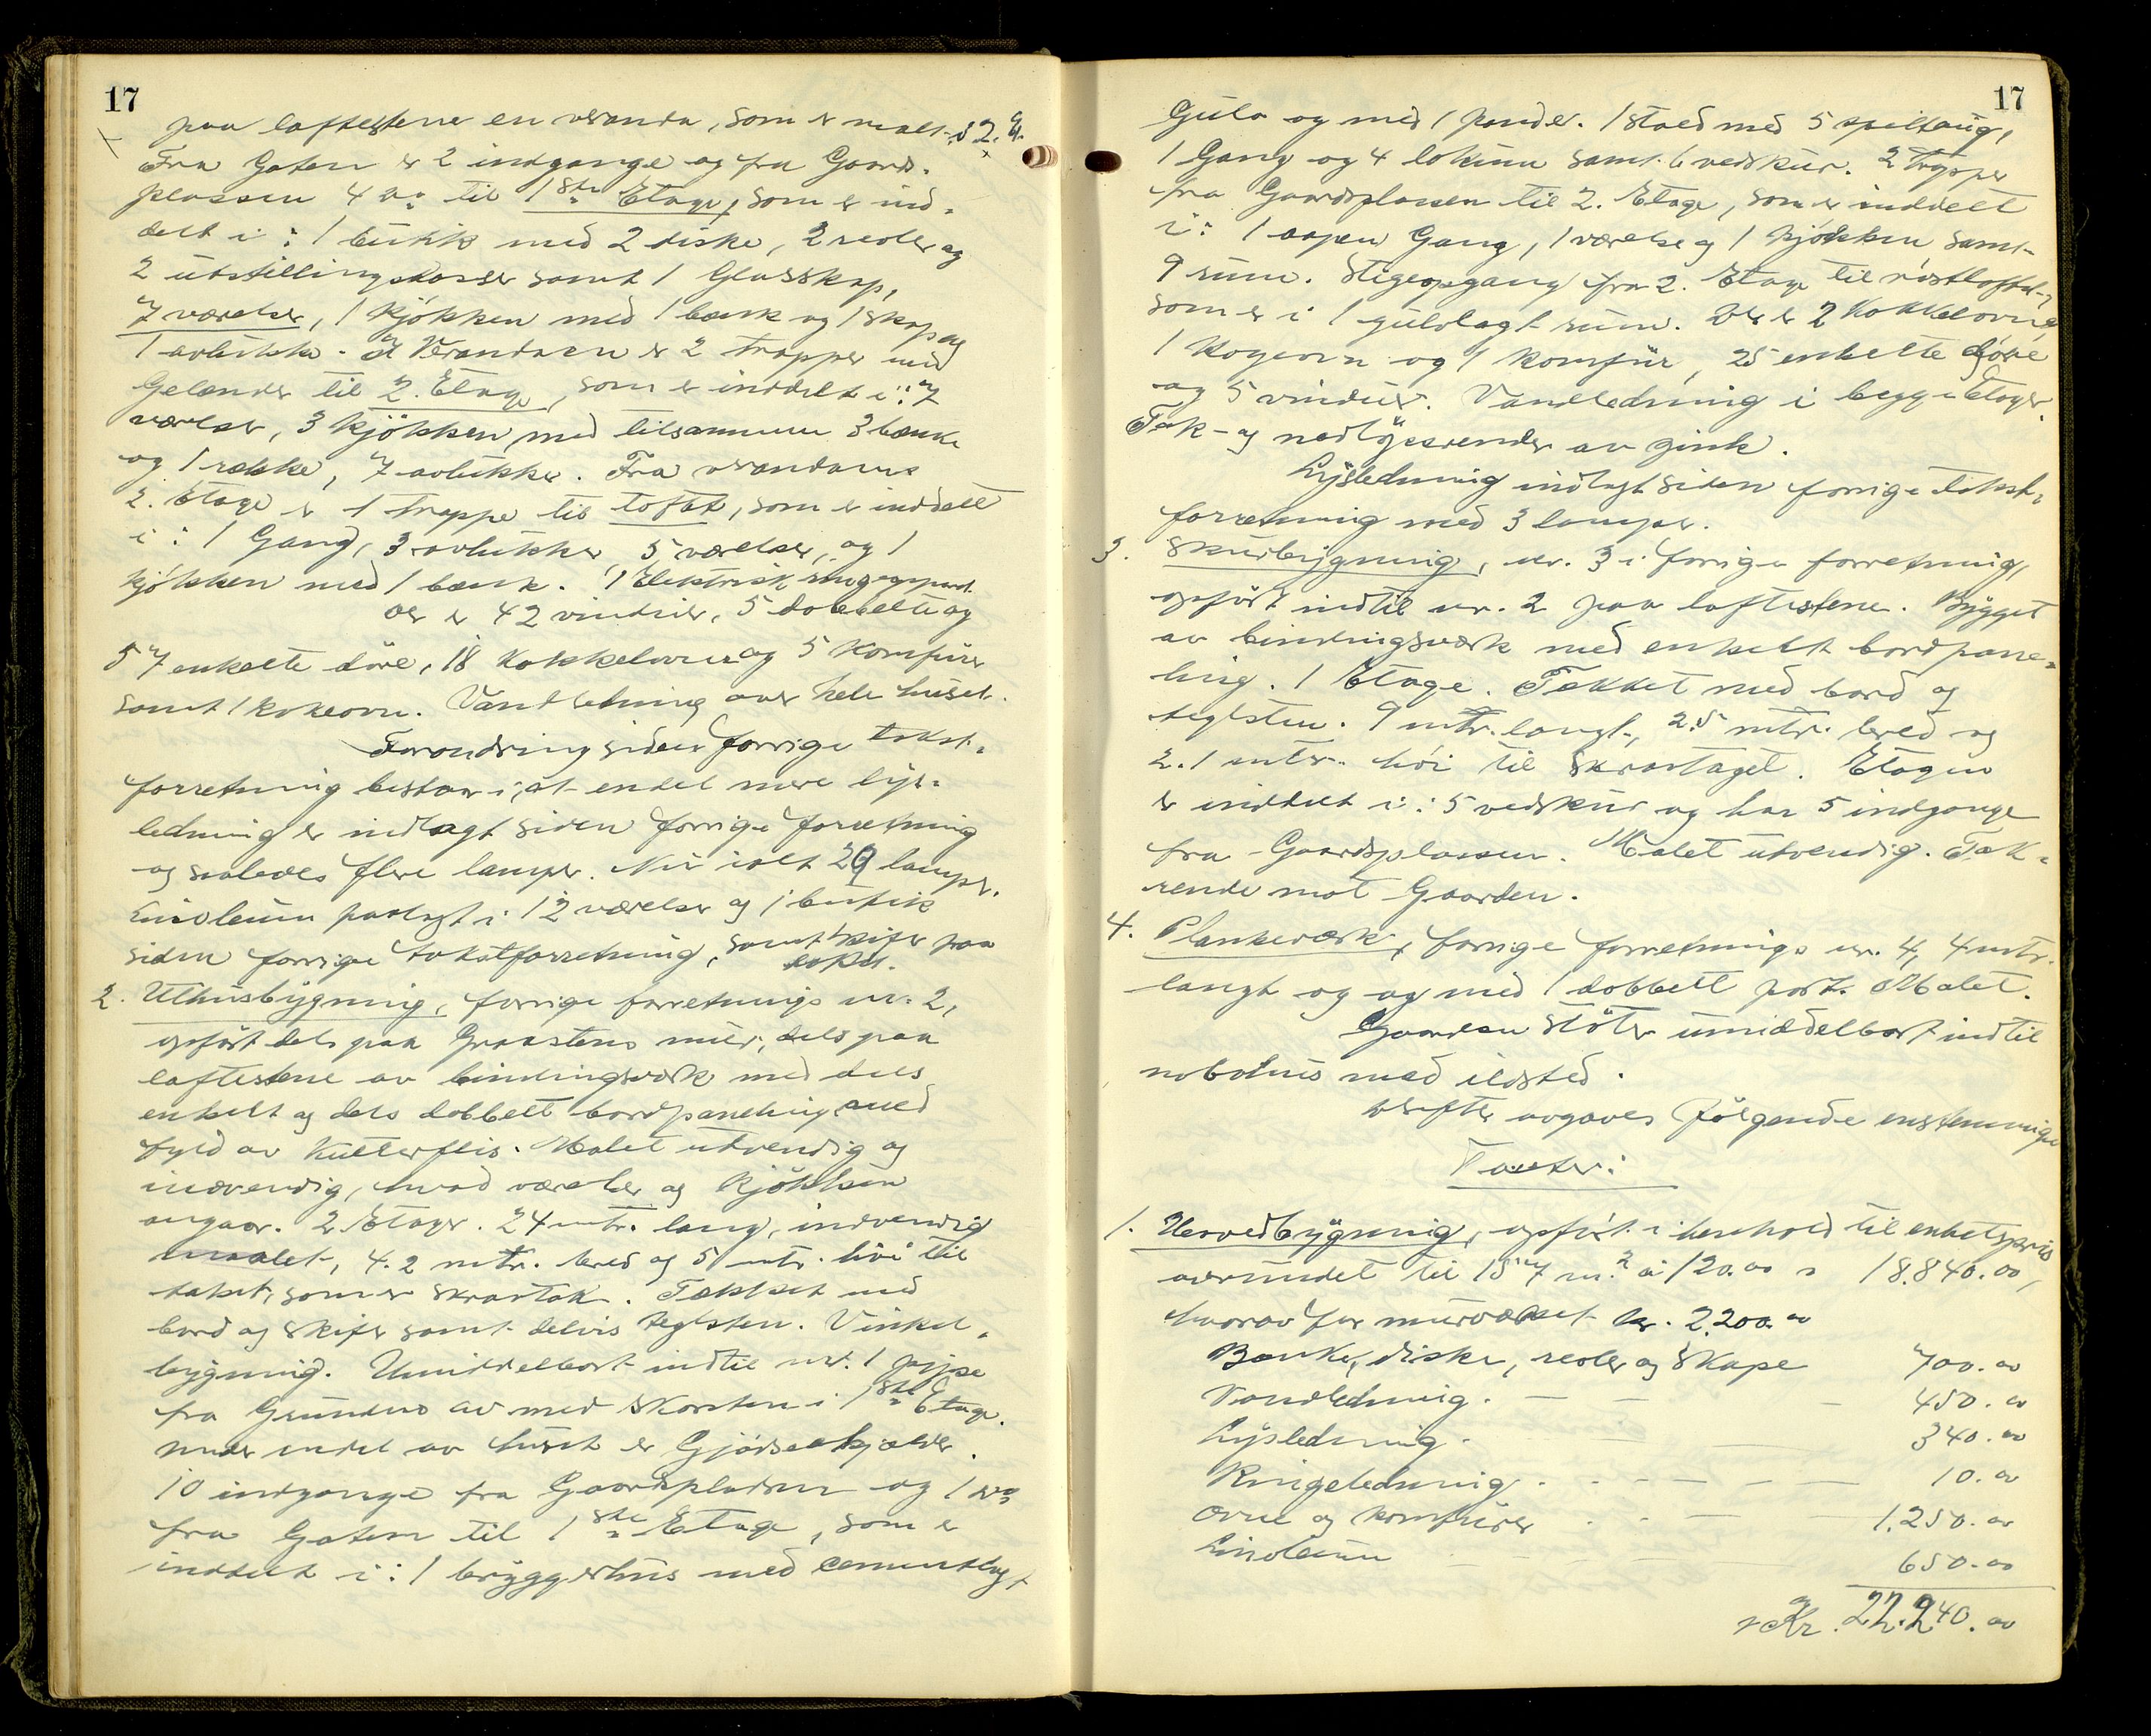 17
paa loftestene en veranda, som er malt. 2. G.
Fra Gaten er 2 indgange og fra Gaards-
plassen 4 do til 1ste Etage, som er ind-
delt i: 1 butik med 2 diske, 2 reoler og
2 utstillingskasser samt 1 Glasskap,
7 værelser, 1 kjøkken med 1 bænk og 1 skap og
1 avlukke. I Verandaen er 2 trapper med
Gelænder til 2. Etage, som er inddelt i: 7
værelser, 3 kjøkken med tilsammen 3 bænke
og 1 række, 7 avlukke. Fra verandaens
2. Etage er 1 trappe til loftet, som er inddelt
i: 1 Gang, 3 avlukker, 5 værelser, og 1
kjøkken med 1 bænk. 1 Elektrisk ringeapparat.
Der er 42 vinduer, 5 dobbelte og
57 enkelte döre, 18 kokkelovne og 5 komfürer
samt 1 kokeovn. Vandledning over hele huset.
Forandring siden forrige takst-
forretning bestaar i, at endel mere lys-
ledning er indlagt siden forrige forretning
og saaledes flere lamper. Nu ialt 29 lamper.
Linoleum paalagt i 12 værelser og 1 butik
siden forrige takstforretning, samt skifer paa
taket.
2. Uthusbygning, forrige forretnings nr. 2,
opført dels paa Graastens mur, dels paa
loftestene av bindingsverk med dels
enkelt og dels dobbelt bordpaneling med
fyld av Kutterflis. Malet utvendig og
indvendig, hvad værelser og kjøkken
angaar. 2 Etager. 24 mtr. lang, indvendig
maalet, 4.2 mtr. bred og 5 mtr. höi til
taket, som er skraatak. Tækket med
bord og skifer samt delvis teglsten. Vinkel-
bygning. Umiddelbart indtil nr. 1 pipe
fra Grunden av med skorsten i 1ste Etage.
under endel av huset er Gjødselkjælder.
10 indgange fra Gaardspladsen og 1 do
fra Gaten til 1ste Etage, som er
inddelt i: 1 bryggerhus med cementlagt
17
Gulv og med 1 pande. 1 stald med 5 spiltaug,
1 Gang og 4 lokum samt 6 vedskur. 2 trapper
fra Gaardsplassen til 2. Etage, som er inddelt
i: 1 aapen Gang, 1 værelse og 1 kjøkken samt
9 rum. Stigeopgang fra 2. Etage til röstloftet,
som er i 1 gulvlagt rum. Der er 2 kokkelovne,
1 kogeovn og 1 komfür, 25 enkelte döre
og 5 vinduer. Vandledning i begge Etager.
Tak- og nedløpsrender av zink.
Lysledning indlagt siden forrige takst-
forretning med 3 lamper.
3. Skurbygning, nr. 3 i forrige forretning,
opført indtil nr. 2 paa loftestene. Bygget
av bindingsverk med enkelt bordpane-
ling. 1 Etage. Tækket med bord og
teglsten. 9 mtr. langt, 2.5 mtr. bred og
2.1 mtr. höi til skraataget. Etagen
er inddelt i: 5 vedskur og har 5 indgange
fra Gaardsplassen. Malet utvendig. Tak-
rende mot Gaarden.
4. Plankeverk, forrige forretnings nr. 4, 4 mtr.
langt og og med 1 dobbelt port. Malet.
Gaarden støter umiddelbart indtil
nabohus med ildsted.
Derefter avgaves følgende enstemmige
Takster:
1. Hovedbygning, opført i henhold til enhetspris
avrundet til 157 m.2 à 120.00 = 18.840.00,
hvorav for murværket kr. 2.200.00
Bænke, diske, reoler og skape 700.00
Vandledning. — — — 450.00
Lysledning. — — 340.00
Ringeledning. - - — — — 10.00
Ovne og komfürer - - — — 1.250.00
Linoleum — — — 650.00
= Kr. 22.240.00